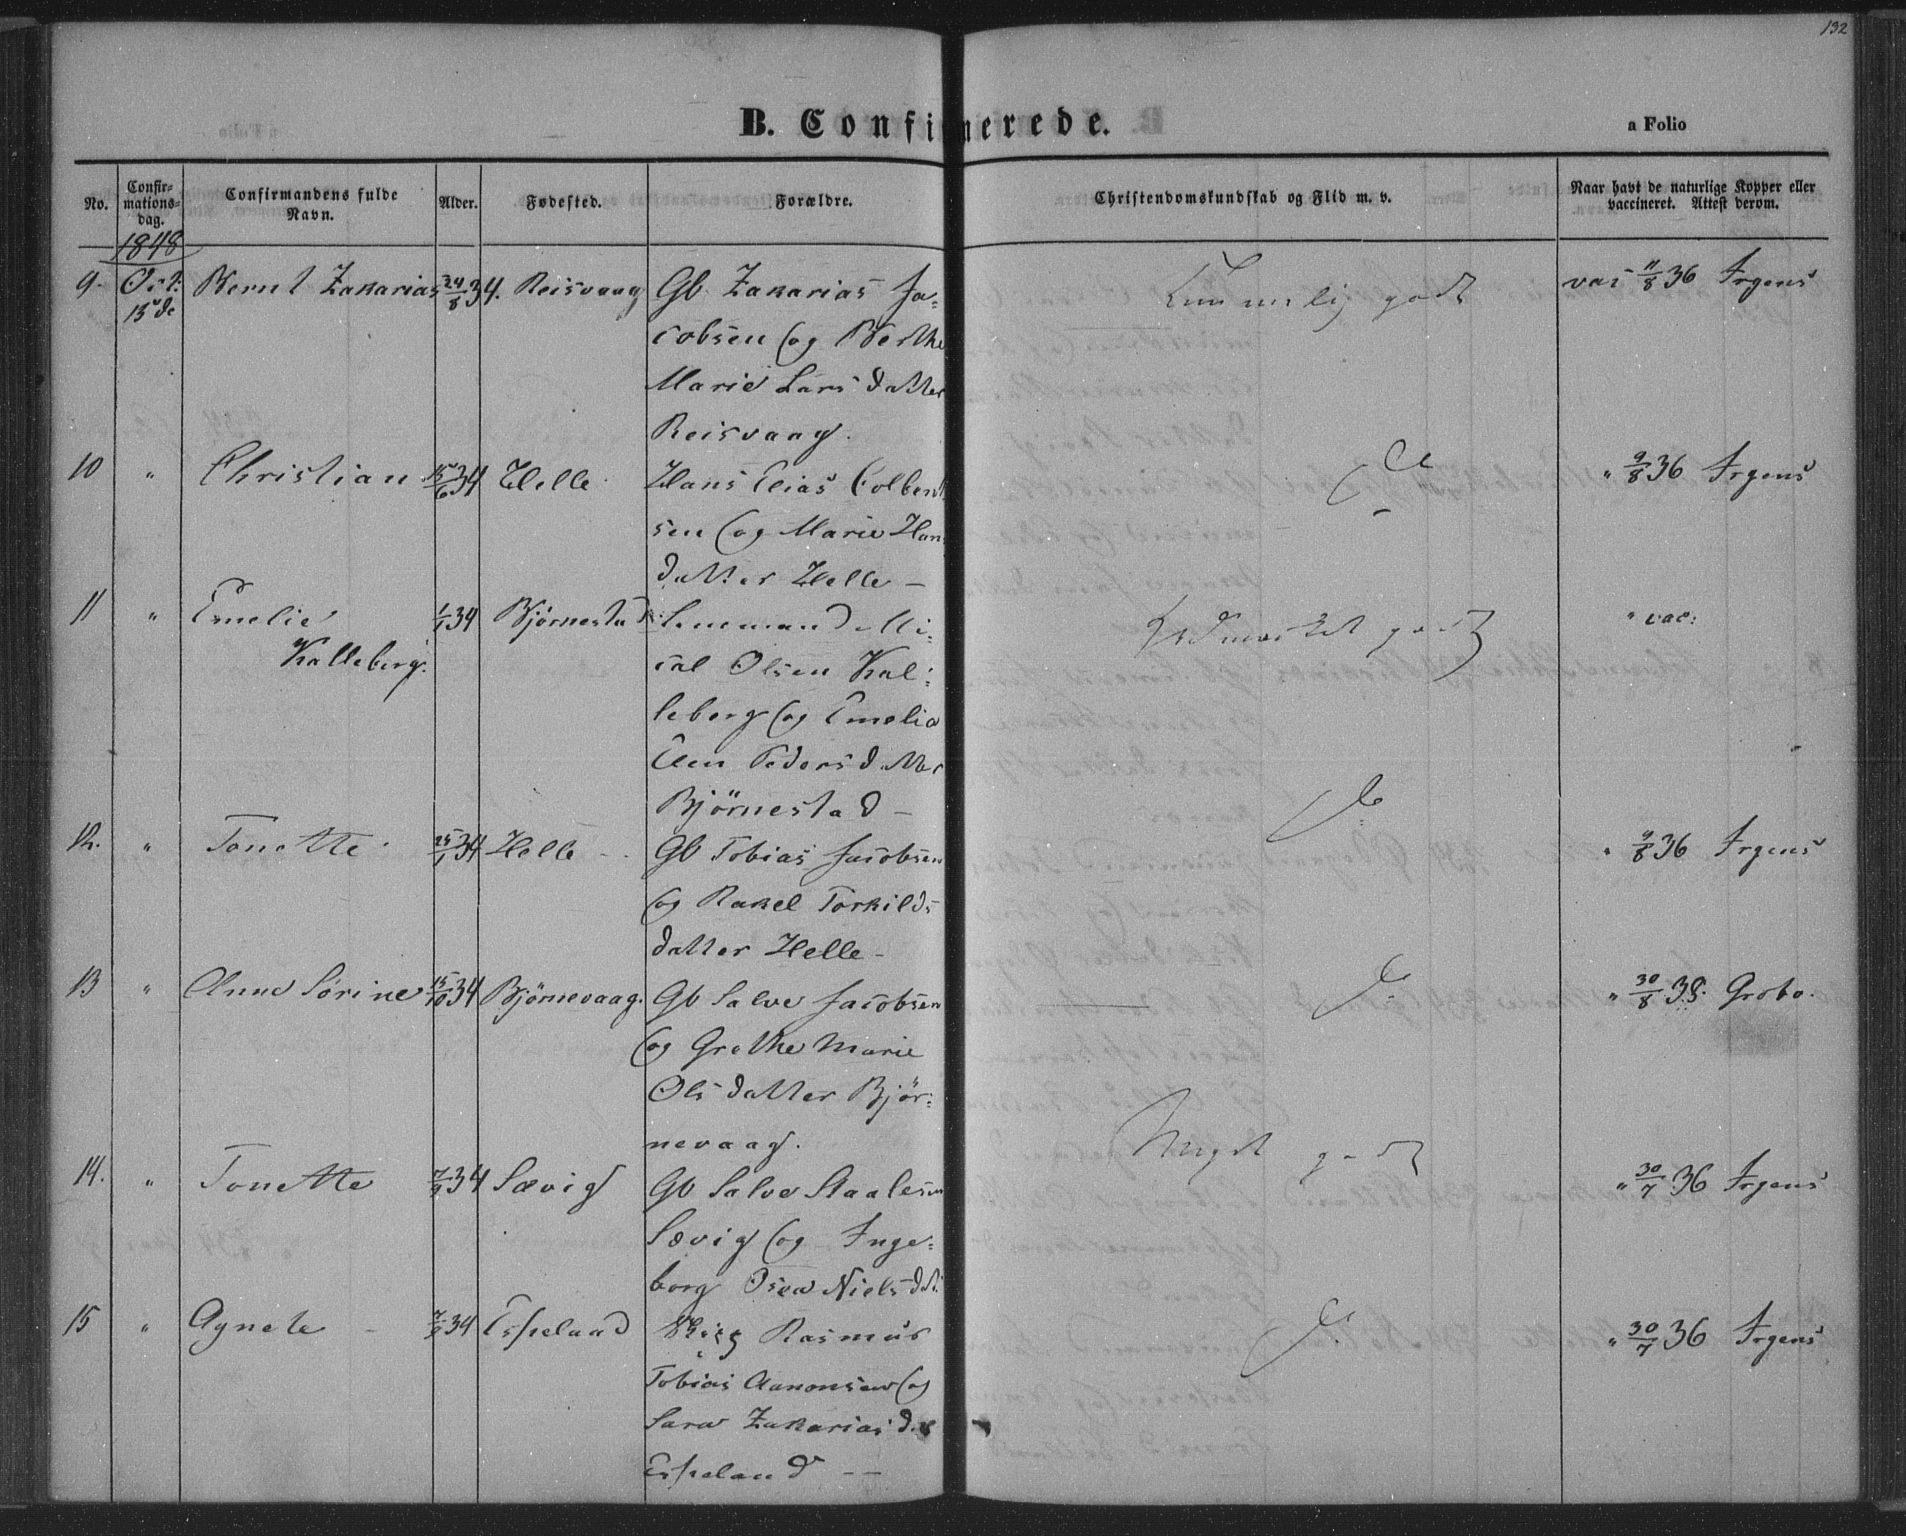 132
B. Confirmerede.
a Folio
No.
Confir-
mations-
dag.
Confirmandens fulde
Navn.
Alder.
Fødested.
Forældre.
Christendomskundskab og Flid m. v.
Naar havt de naturlige Kopper eller
vaccineret. Attest derom.
1848
9. Oct: Bernt Zakarias 24/8 34. Reisvaag Gb Zakarias Ja=
13de
cobsen og Berthe
Marie Larsdatter
Reisvaag.
Temmelig godt
vac 11/8 36 Irgens
10 " Christian 15/6 34 Helle Hans Elias Colbent
sen og Marie Hans
datter Helle —
" 9/8 36 Irgens
11 " Emelie 1/1 34 Bjørnestad Lensmand Mi=
Kalleberg.
cal Olsen Kal=
leberg og Emelia
Elen Pedersdatter
Bjørnestad —
Udmærket godt
" vac:
12. " Tonette 25/1 34 Helle Gb Tobias Jacobsen
og Rakel Torkilds
datter Helle —
D.
" 9/8 36 Irgens
13 " Anne Sørine 15/10 34 Bjørnevaag. Gb Salve Jacobsen
og Grethe Marie
Olsdatter Bjør=
nevaag.
D.
" 30/8 35. Grobo.
14. " Tonette 7/9 34 Sævig Gb Salve Staalesen
Sævig og Inge=
borg Osea Nielsdtr
Meget godt
" 30/7 36 Irgens
15 " Agnete 7/9 34 Espeland Rasmus
Tobias Aanonsen og
Sara Zakariasd.
Espeland —
D.
" 30/7 36 Irgens